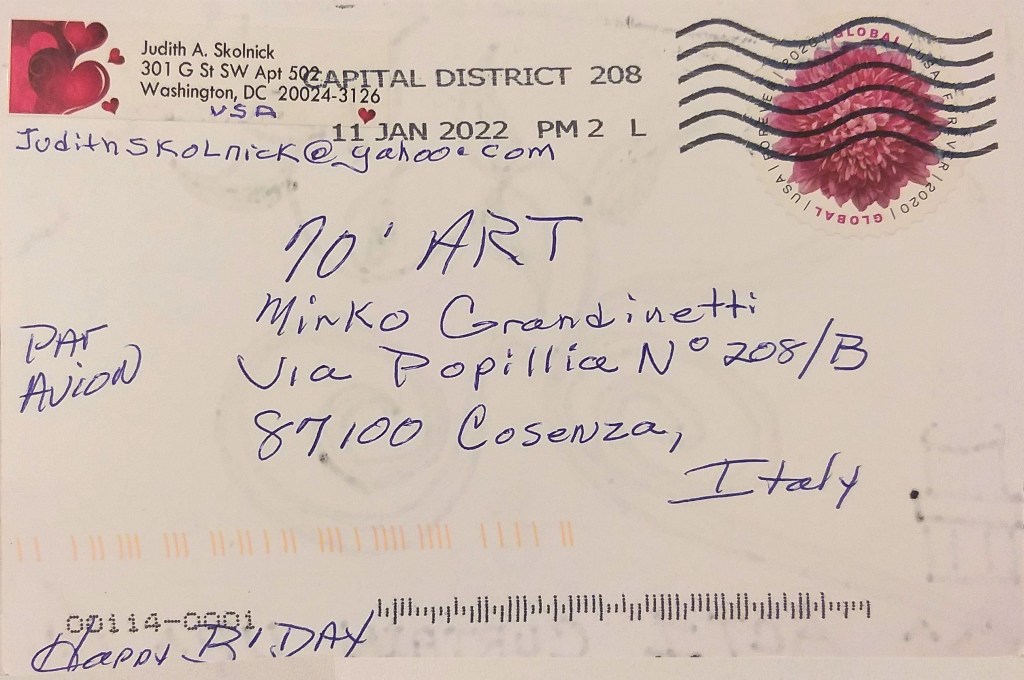 Judith A. Skolnick
301 G St SW Apt 502
Washington, DC 20024-3126
USA
CAPITAL DISTRICT 208
11 JAN 2022 PM 2 L
JudithSKOLnick@yahoo.com
GLOBAL | USA | FOREVER | 2020 | GLOBAL | USA | FOREVER | 2020 |
70' ART
Minko Grandinetti
PAr
AVION
Via Popillia Nº 208/B
87100 Cosenza,
Italy
00114-0001
HAPPY B'.DAY